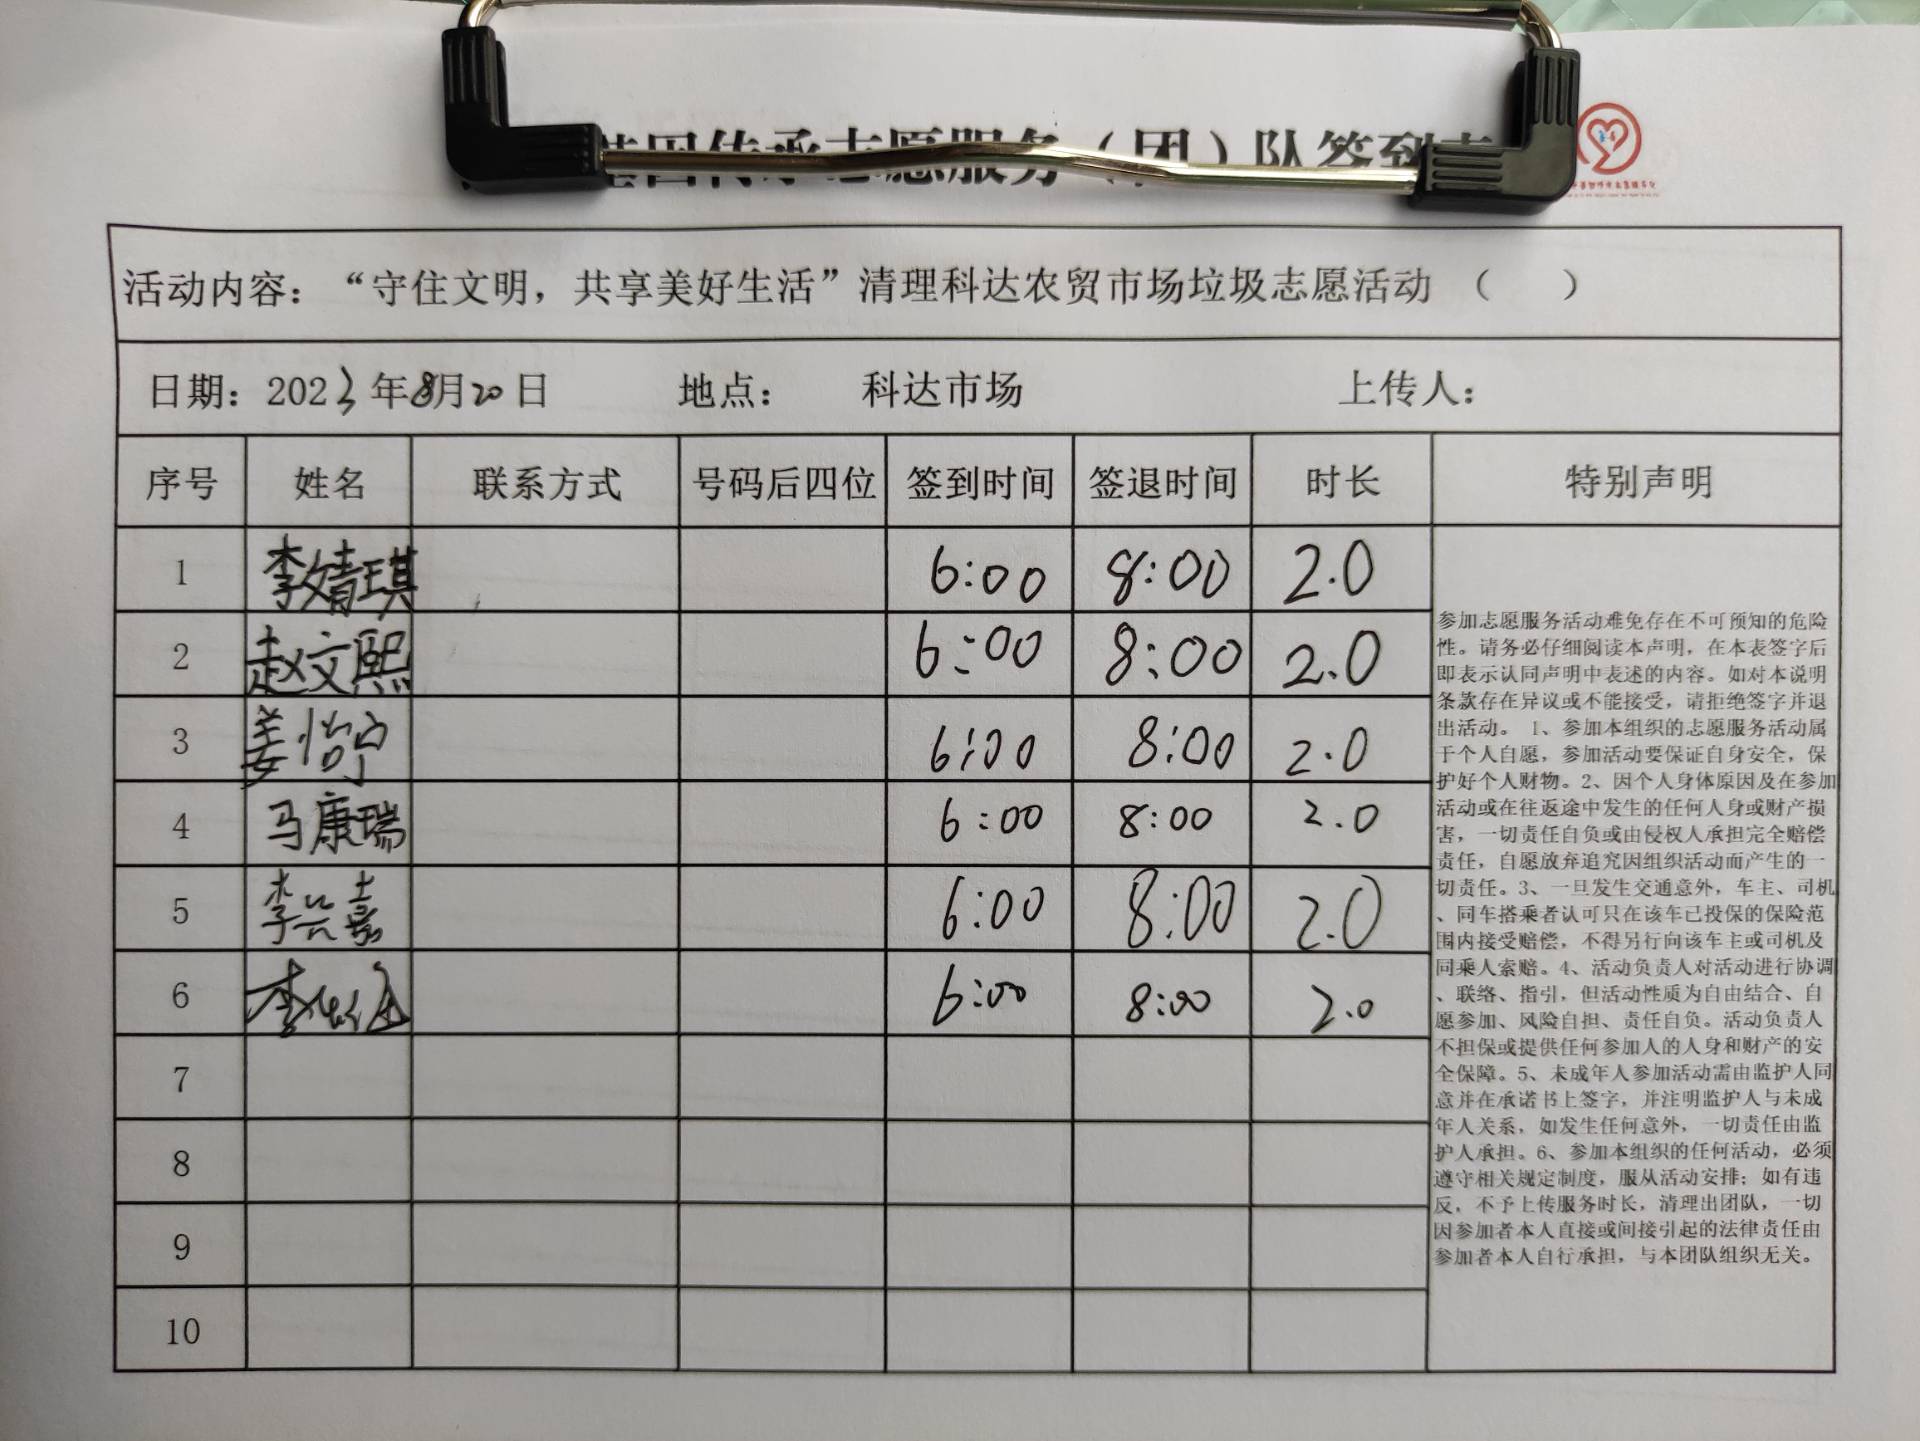 基因传承志愿服务（团）队签到表
活动内容：“守住文明，共享美好生活”清理科达农贸市场垃圾志愿活动 （ ）
日期：2023年8月20日 地点： 科达市场 上传人：
序号 姓名 联系方式 号码后四位 签到时间 签退时间 时长 特别声明
1 李婧琪 6:00 8:00 2.0
2 赵文熙 6:00 8:00 2.0
3 姜怡宁 6:00 8:00 2.0
4 马康瑞 6:00 8:00 2.0
5 李兴嘉 6:00 8:00 2.0
6 李 6:00 8:00 2.0
7
8
9
10
参加志愿服务活动难免存在不可预知的危险
性。请务必仔细阅读本声明，在本表签字后
即表示认同声明中表述的内容。如对本说明
条款存在异议或不能接受，请拒绝签字并退
出活动。 1、参加本组织的志愿服务活动属
于个人自愿，参加活动要保证自身安全，保
护好个人财物。2、因个人身体原因及在参加
活动或在往返途中发生的任何人身或财产损
害，一切责任自负或由侵权人承担完全赔偿
责任，自愿放弃追究因组织活动而产生的一
切责任。3、一旦发生交通意外，车主、司机
、同车搭乘者认可只在该车已投保的保险范
围内接受赔偿，不得另行向该车主或司机及
同乘人索赔。4、活动负责人对活动进行协调
、联络、指引，但活动性质为自由结合、自
愿参加、风险自担、责任自负。活动负责人
不担保或提供任何参加人的人身和财产的安
全保障。5、未成年人参加活动需由监护人同
意并在承诺书上签字，并注明监护人与未成
年人关系，如发生任何意外，一切责任由监
护人承担。6、参加本组织的任何活动，必须
遵守相关规定制度，服从活动安排；如有违
反，不予上传服务时长，清理出团队，一切
因参加者本人直接或间接引起的法律责任由
参加者本人自行承担，与本团队组织无关。